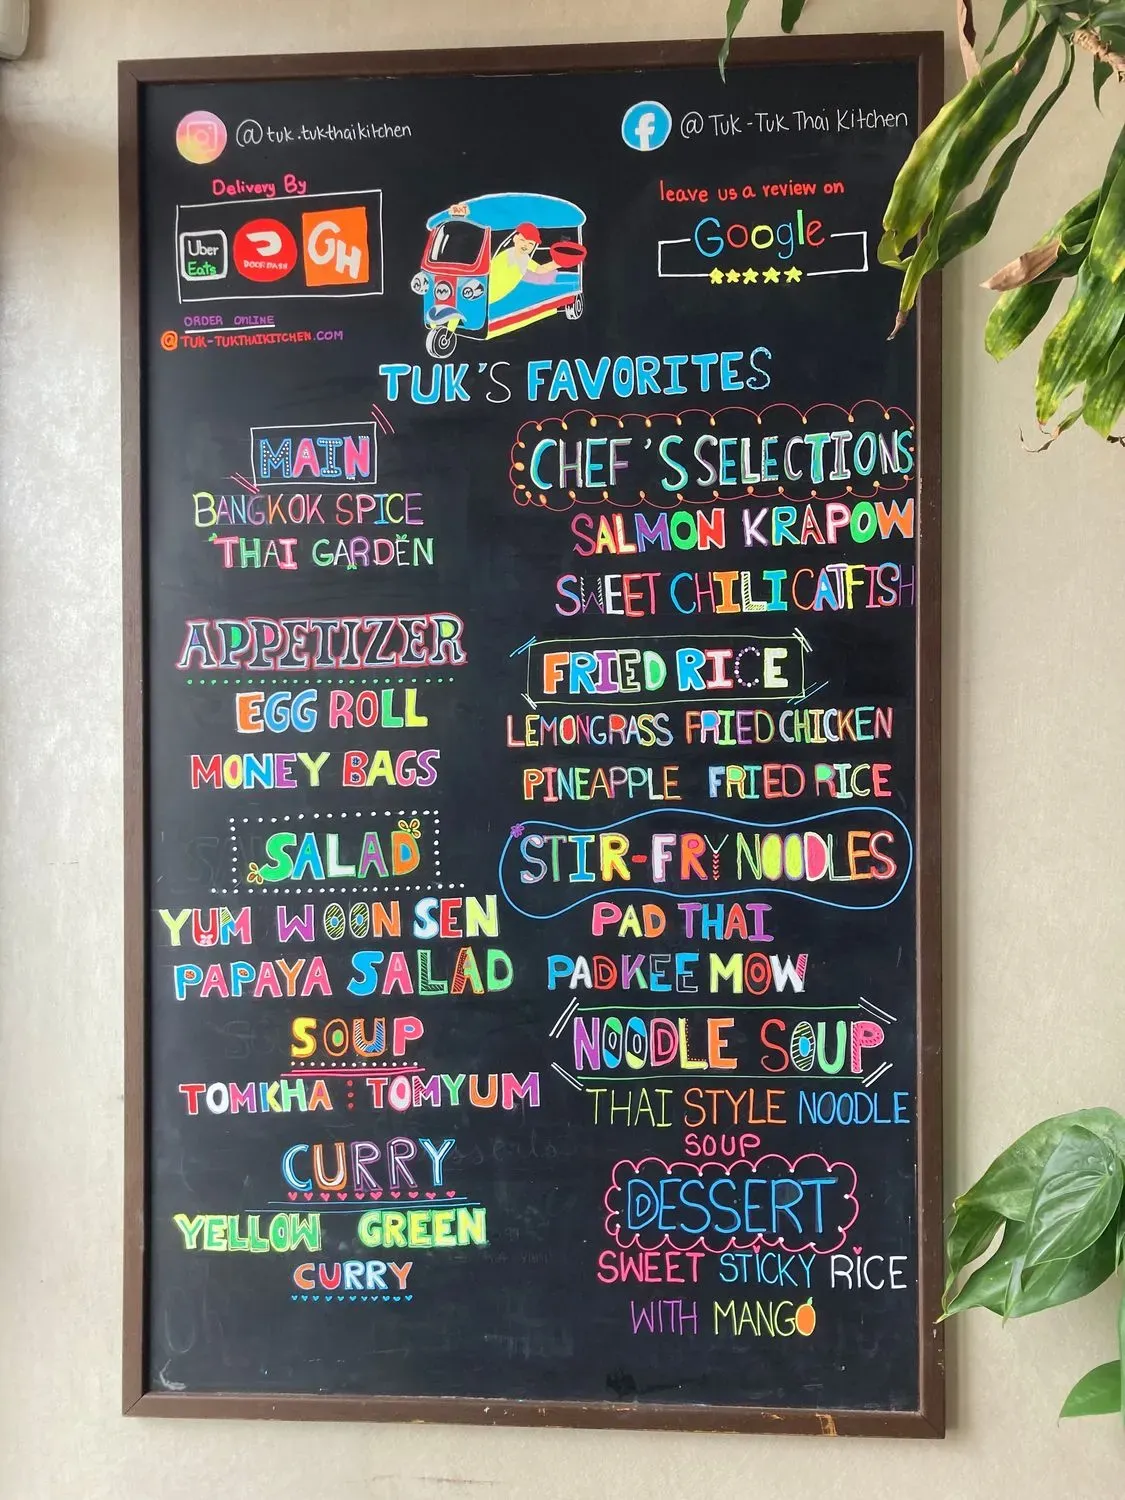 @tuk.tukthaikitchen
@ Tuk-Tuk Thai Kitchen
Delivery By
Uber
Eats
DOORDASH
GH
ORDER ONLINE
@ TUK-TUKTHAIKITCHEN.COM
TAXI
leave us a review on
Google
TUK'S FAVORITES
MAIN
BANGKOK SPICE
THAI GARDEN
APPETIZER
EGG ROLL
MONEY BAGS
SALAD
YUM WOON SEN
PAPAYA SALAD
SOUP
TOMKHA : TOMYUM
CURRY
YELLOW GREEN
CURRY
CHEF'S SELECTIONS
SALMON KRAPOW
SWEET CHILI CATFISH
FRIED RICE
LEMONGRASS FRIED CHICKEN
PINEAPPLE FRIED RICE
STIR-FRY NOODLES
PAD THAI
PADKEE MOW
NOODLE SOUP
THAI STYLE NOODLE
SOUP
DESSERT
SWEET STICKY RICE
WITH MANGO